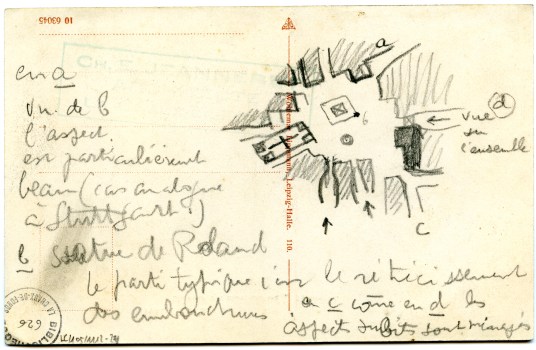 10 63045
CH. E. JEANNERET
a
en a
vu de b
l'aspect
est particulièrement
beau (cas analogue
à Stuttgart !)
b
d
vue
sur
l'ensemble
Leipzig-Halle. 110.
c
b statue de Roland
le parti typique c'est le rétrécissement
des embouchures
en c comme en d les
aspects subits sont ménagés
LA CHAUX-DE-FONDS
BIBLIOTHEQUE
626